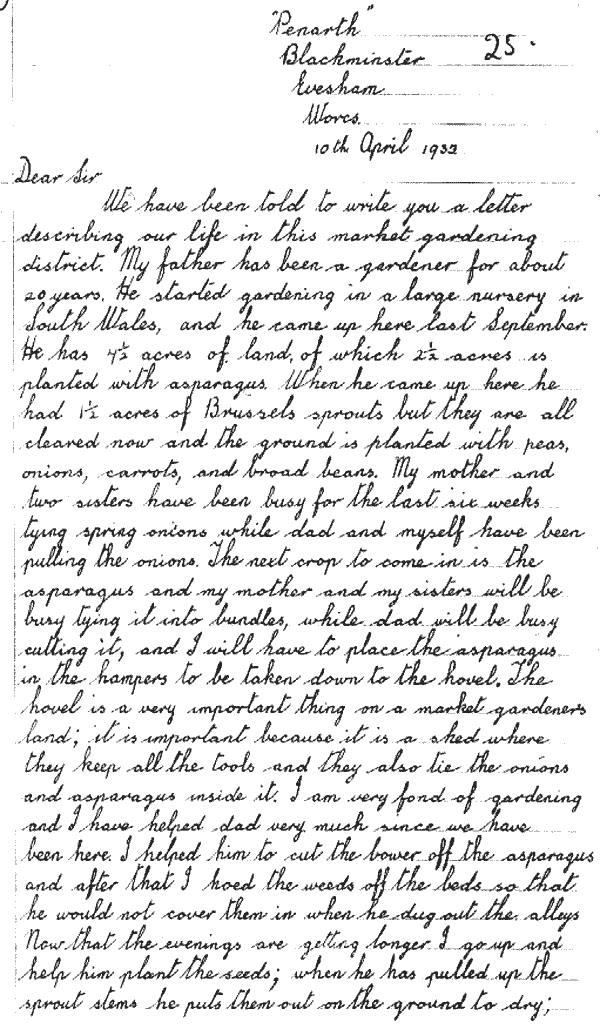 "Penarth"
25.
Blackminster
Evesham
Worcs.
10th April 1932
Dear Sir
We have been told to write you a letter
describing our life in this market gardening
district. My father has been a gardener for about
20 years. He started gardening in a large nursery in
South Wales, and he came up here last September.
He has 4½ acres of land, of which 2½ acres is
planted with asparagus. When he came up here he
had 1½ acres of Brussels sprouts but they are all
cleared now and the ground is planted with peas,
onions, carrots, and broad beans. My mother and
two sisters have been busy for the last six weeks
tying spring onions while dad and myself have been
pulling the onions. The next crop to come in is the
asparagus and my mother and my sisters will be
busy tying it into bundles, while dad will be busy
cutting it, and I will have to place the asparagus
in the hampers to be taken down to the hovel. The
hovel is a very important thing on a market gardeners
land; it is important because it is a shed where
they keep all the tools and they also tie the onions
and asparagus inside it. I am very fond of gardening
and I have helped dad very much since we have
been here. I helped him to cut the bower off the asparagus
and after that I hoed the weeds off the beds so that
he would not cover them in when he dug out the alleys
Now that the evenings are getting longer I go up and
help him plant the seeds; when he has pulled up the
sprout stems he puts them out on the ground to dry;